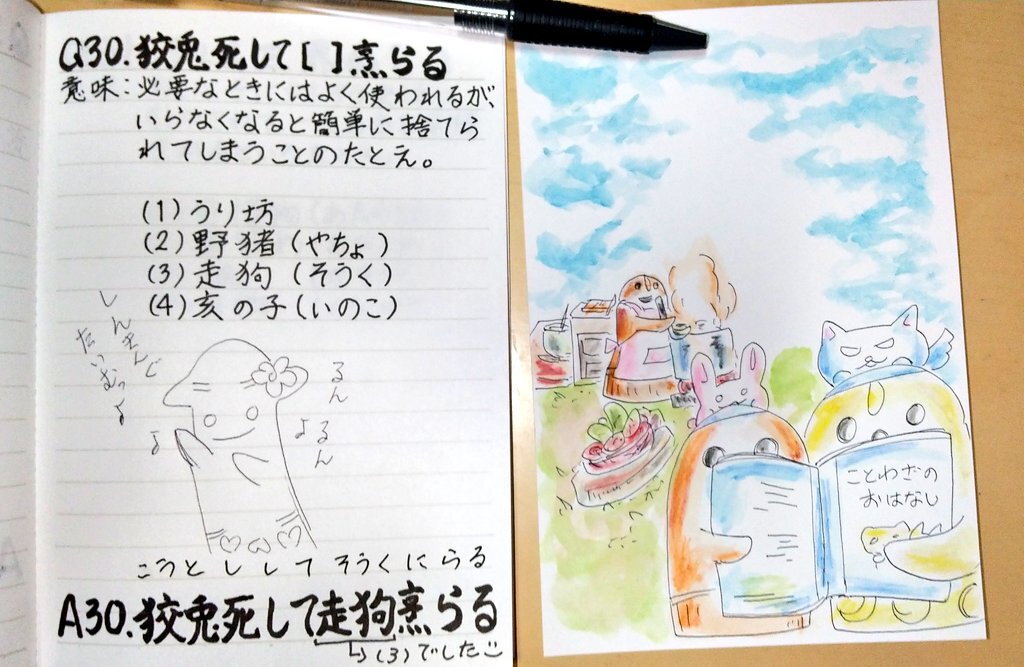 Q30.狡兎死して[ ]烹らる
意味:必要なときにはよく使われるが、
いらなくなると簡単に捨てら
れてしまうことのたとえ。
(1)うり坊
(2)野猪(やちょ)
(3)走狗(そうく)
(4)亥の子(いのこ)
しんきんぐ
たいむっよ
るん
るん
♪
♪
こうとししてそうくにらる
A30.狡兎死して走狗烹らる
(3)でした
ことわざの
おはなし